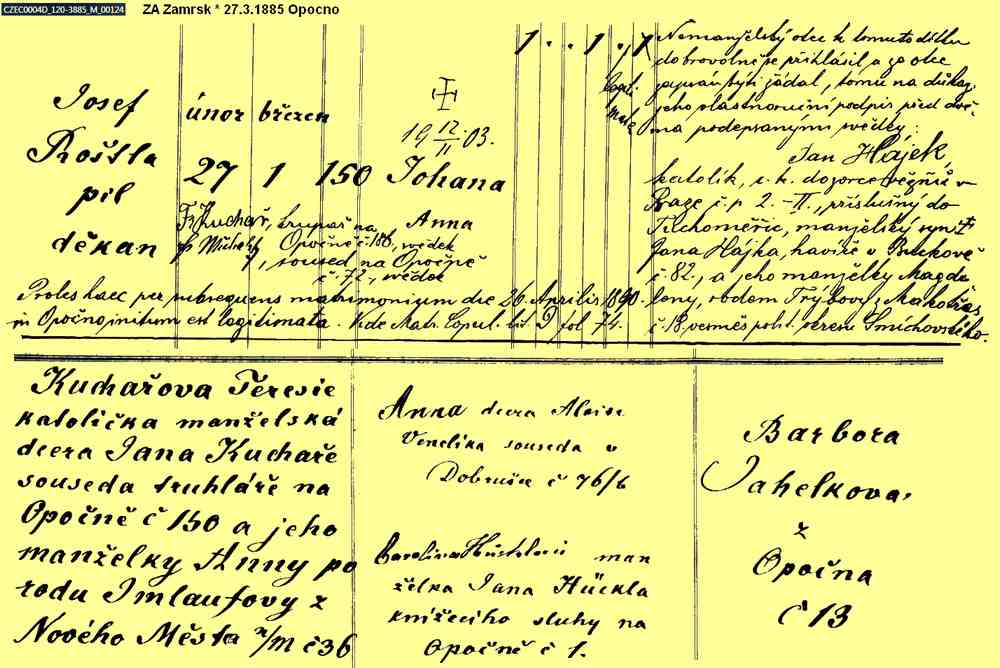 CZEC0004D_120-3885_M_00124
ZA Zamrsk * 27.3.1885 Opocno
Josef
Roštla
pil
děkan
únor březen
27 1 150
19 12/II 03.
Johana
Anna
Fr. Kuchař, truhař na
Opočně č. 180, wědek
soused na Opočně
č. 72, wědek
1 . . 1 . 1
Nemanželský otec k tomuto dítku
dobrovolně se přihlásil a za otce
zapsán býti žádal, tomu na důkaz
jeho vlastnoruční podpis před dvě-
ma podepsanými wědky:
Jan Hájek,
katolík, c. k. dozorce vězňů v
Praze č. p. 2. - II., příslušný do
Tuchoměřic, manželský syn †
Jana Hájka, havíře v Buckově
č. 82., a jeho manželky Magda
leny, rodem Trýbovy z Makotřas
č. 18, okres Smíchovského.
Proles haec per subsequens matrimonium die 26. Aprilis 1890.
in Opočno initum est legitimata. Vide Matr. Copul. lit. D fol 74.
Kuchařova Teresie
katolička manželská
dcera Jana Kuchaře
souseda truhláře na
Opočně č 150 a jeho
manželky Anny po
rodu Imlaufovy z
Nového Města n/M č 36
Anna dcera Aloise
souseda v
Dobrušce č 76/6
Carolina man
želka Jana Hückla
knížecího sluhy na
Opočně č 1.
Barbora
Jahelkova,
z
Opočna
č 13